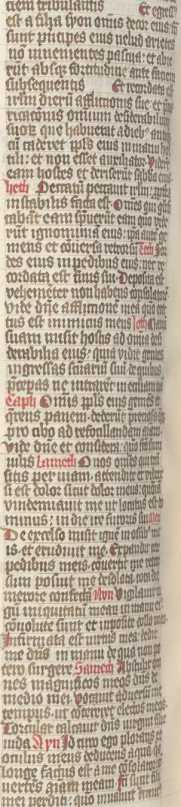 dem tribulantis Et egress9
est a filia syon omnis decor eius fci
sunt principes eius uelud arietes
nō inuenientes pascua: et abie
rūt absqz fortitudine ante faciem
subsequentis Et recordata est
irlm dierū afflictionis sue et p̄ua
ricationis omniū desiderabiliū
suorz que habuerat a dieb9 antiqs
cū caderet ppls eius in manu ho
stili: et non esset auxiliator Viderūt
eam hostes et deriserūt sabbata eius
heth Peccatū peccauit irlm: ppterea
instabilis facta est Omnes qui glorifi
cabāt eam spreuerūt eam quia vide
rūt ignominiā eius: ipa aūt ge
mens et conuersa retrorsū Teth Sor
des eius in pedibus eius: nec re
cordata est finis sui Deposita est
vehementer non habens consolatorē
vide dn̄e afflictionē meā qm̄ erec
tus est inimicus meus Joth Manū
suam misit hostis ad omnia desi
derabilia eius: quia vidit gentes
ingressas scuariū suū: de quibus
p̄ceperas ne intrarēt in ecclesiam tuā
Caph Omis ppls eius gemēs et
q̄rens panem: dederūt preciosa qz
pro cibo ad refocillandam aīam:
vide dn̄e et considera: quia facta sū
vilis Lameth O uos omēs qui trā
sitis per viam: attendite et videte
si est dolor sicut dolor meus: quia
vindemiauit me ut locutus est do
minus: in die ire furoris sui Mem
De excelso misit ignē in ossib9 me
is et erudiuit me. Expandit rete
pedibus meis: conuertit me retror
sum posuit me desolatā tota die
merore confectā Nun Vigilauit iu
gū iniquitatū meaꝝ in manu ei9
conuolute sunt et inposite collo meo
Infirmata est uirtus mea: dedit
me dn̄s in manu de qua non po
tero surgere Samech Abstulit om
nes magnificos meos dn̄s de
medio mei: Vocauit aduersū me
tempus: ut contereret electos meos
Torcular calcauit dn̄s uirgini filie
iuda Ayn Id circo ego plorans et
oculus meus deducens aquā: qz
longe factus est a me consolator con
uertens aīam meam: fci sunt filij
mei perditi: qm̄ inualuit inimic9